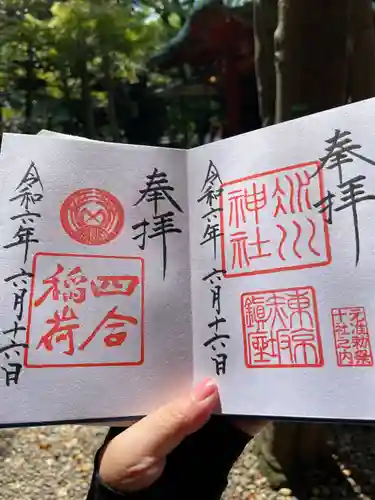 奉拝
氷川
神社
元准勅祭
十社之内
東京
赤坂
鎮座
令和六年六月十六日
奉拝
四合
稲荷
令和六年六月十六日